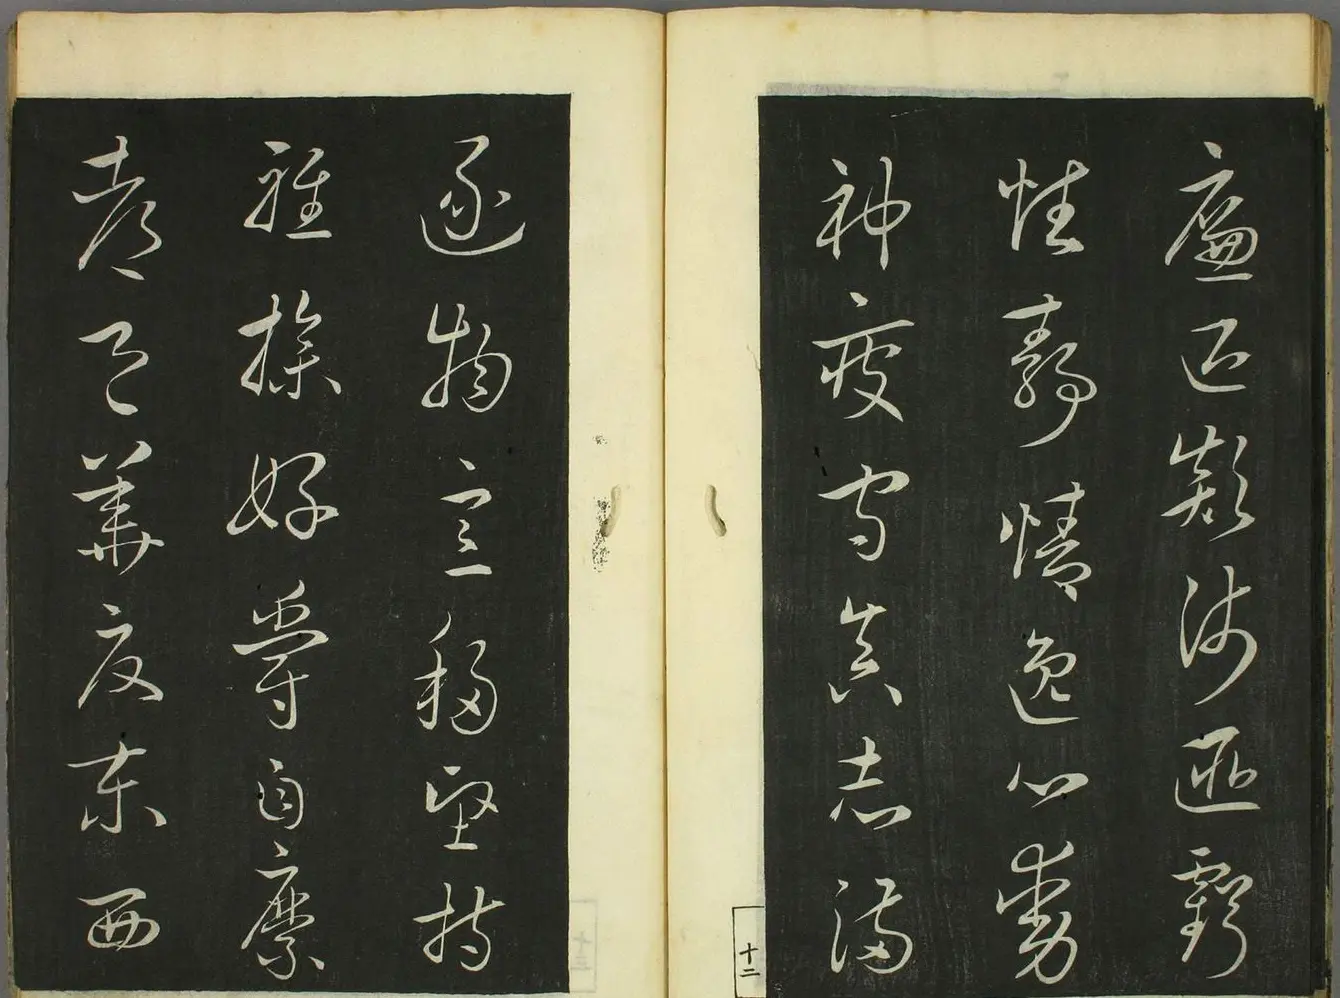 廉退顛沛匪虧
性靜情逸心動
神疲守真志滿
十二
逐物意移堅持
雅操好爵自縻
都邑華夏東西